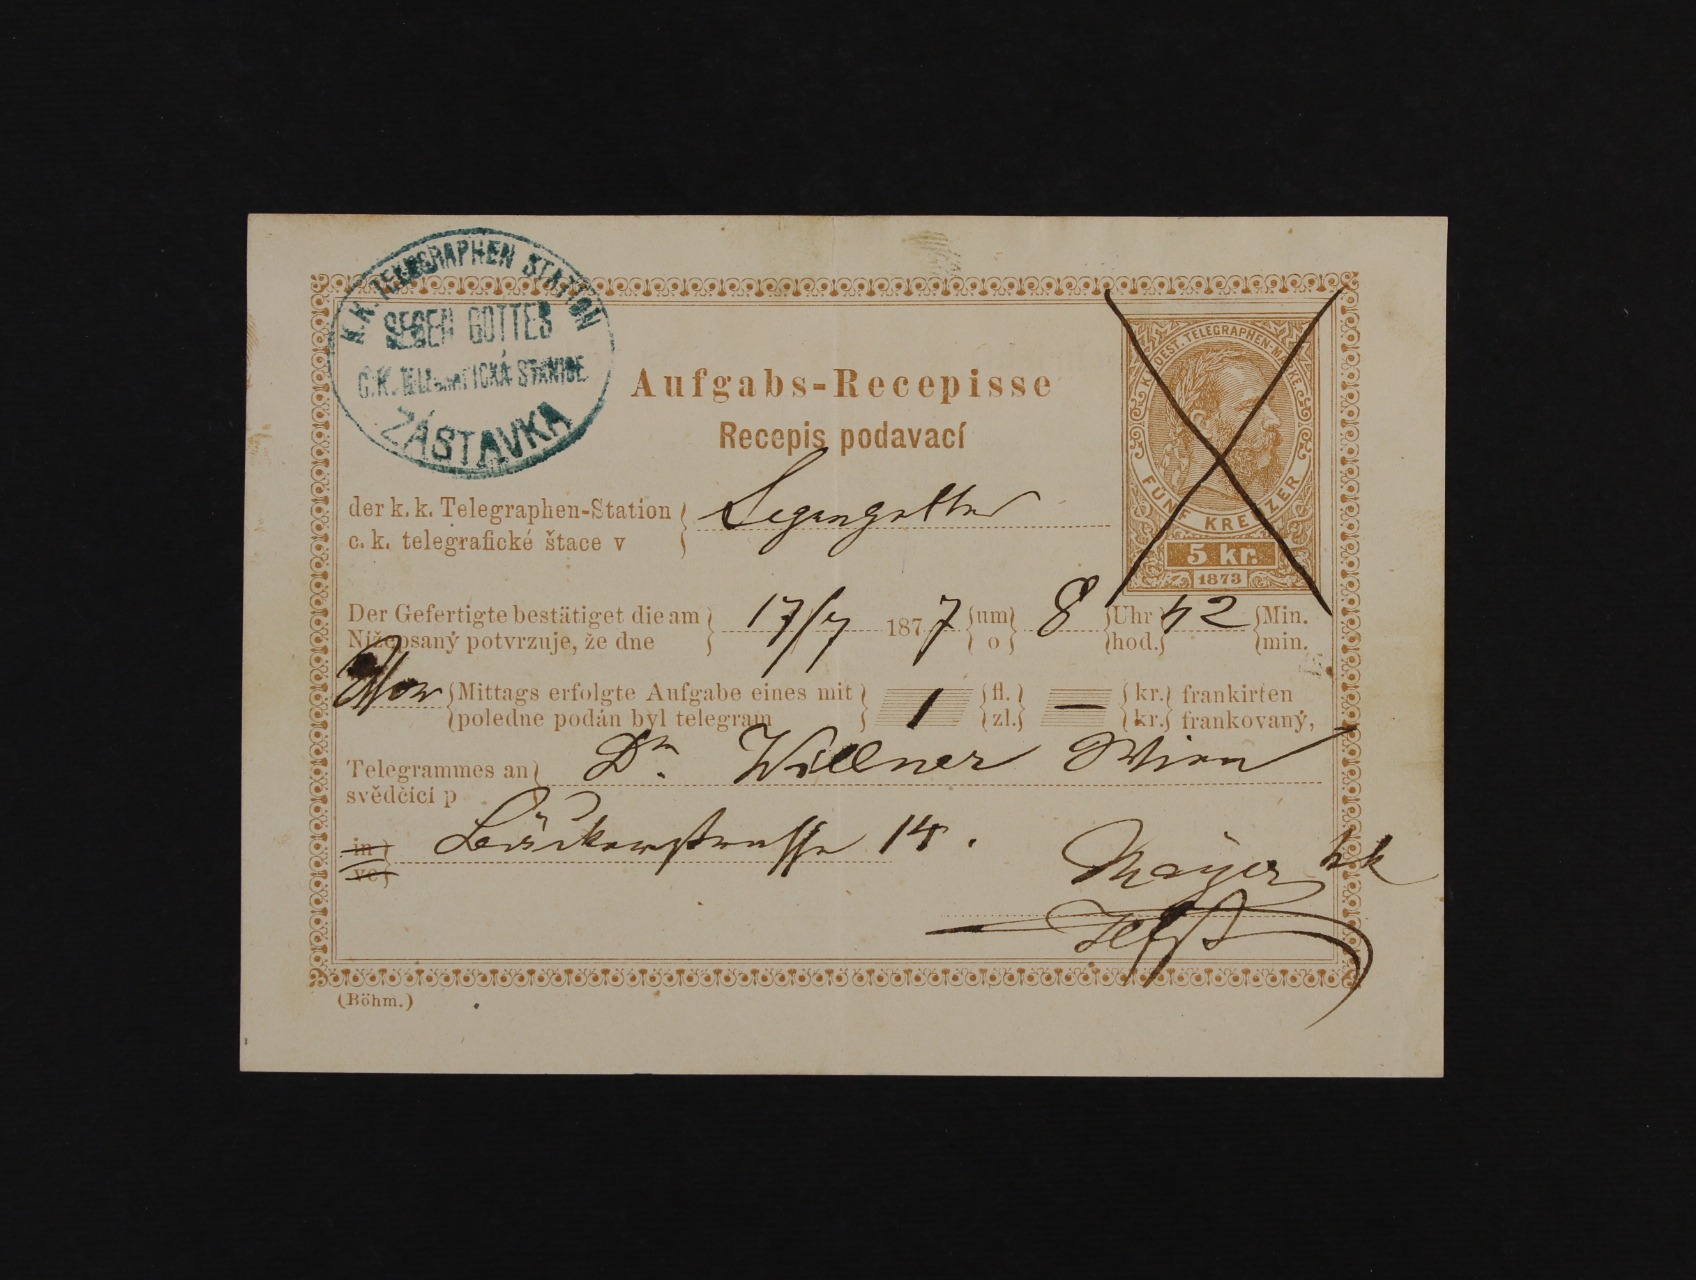 K.K. TELEGRAPHEN STATION
SEGEN GOTTES
C.K. TELEGRAFICKÁ STANICE
ZÁSTAVKA
Aufgabs-Recepisse
Recepis podavací
K.K. OEST. TELEGRAPHEN-MARKE.
FÜNF KREUZER
5 kr.
1873
der k. k. Telegraphen-Station
c. k. telegrafické štace v
Segengottes
Der Gefertigte bestätiget die am 17/7 1877 um 8 Uhr 42 Min.
Nížepsaný potvrzuje, že dne o hod. min.
Vor Mittags erfolgte Aufgabe eines mit 1 fl. — kr. frankirten
poledne podán byl telegram zl. kr. frankovaný,
Telegrammes an Dr. Willner Wien
svědčící p
in Bäckerstrasse 14.
ve
Mayer
(Böhm.)